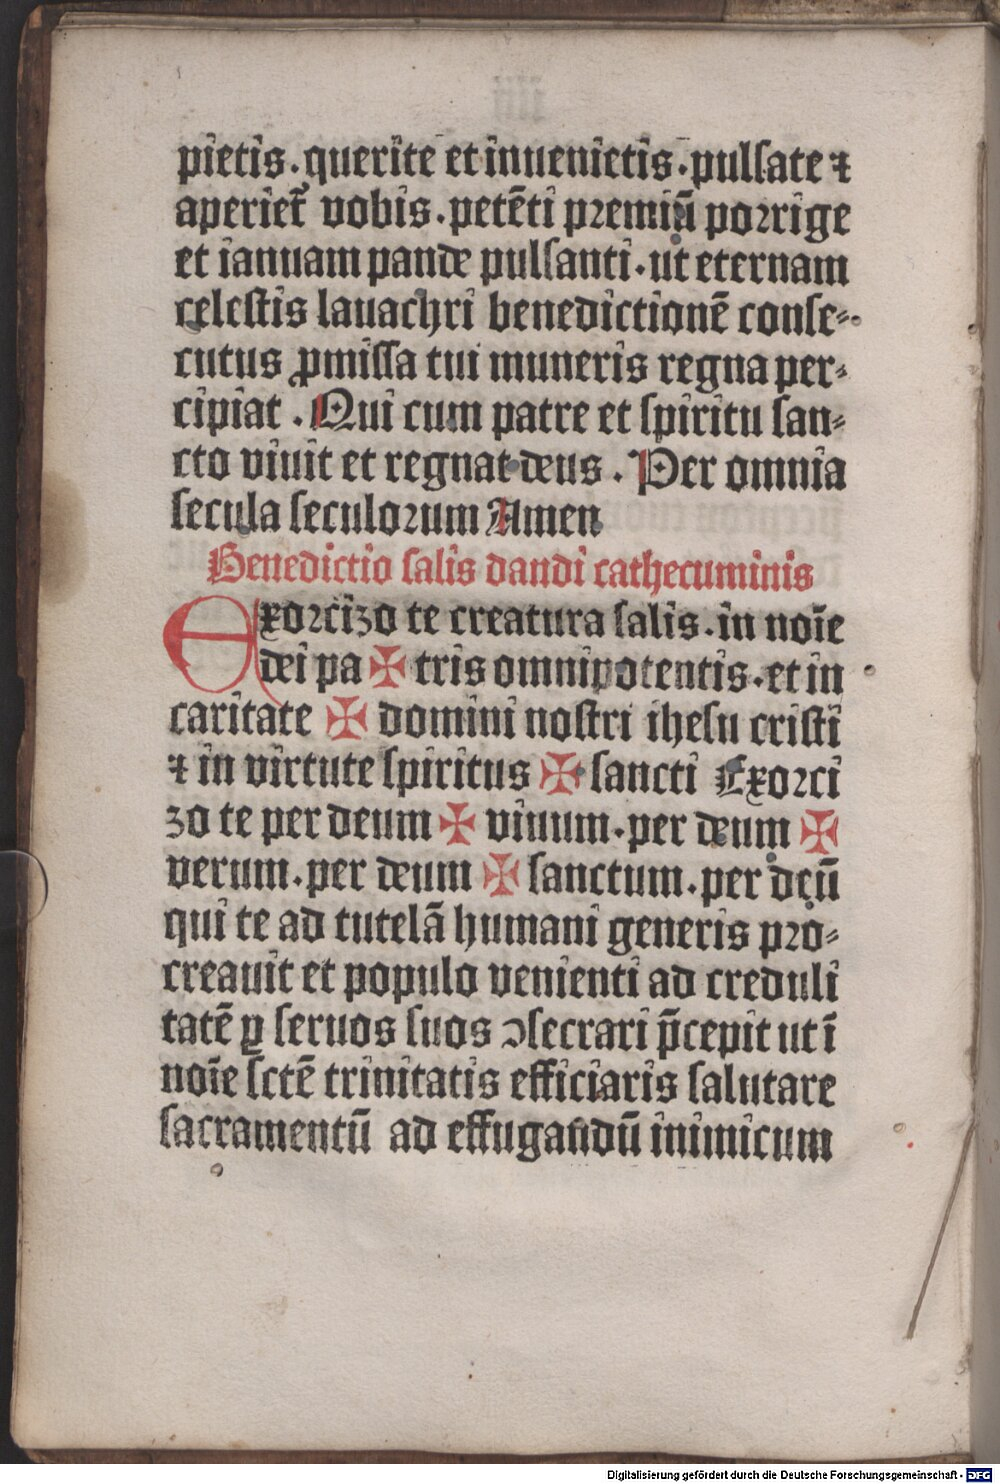 pietis . querite et inuenietis . pulsate ⁊
aperiet᷑ vobis . petēti premiū porrige
et ianuam pande pulsanti . ut eternam
celestis lauachri benedictionē conse-
cutus ꝓmissa tui muneris regna per-
cipiat . Qui cum patre et spiritu san-
cto viuit et regnat deus . Per omnia
secula seculorum Amen
Benedictio salis dandi cathecuminis
Exorcizo te creatura salis . in noīe
dei pa ✠ tris omnipotentis . et in
caritate ✠ domini nostri ihesu cristi
⁊ in virtute spiritus ✠ sancti Exorci
zo te per deum ✠ viuum . per deum ✠
verum . per deum ✠ sanctum . per deū
qui te ad tutelā humani generis pro-
creauit et populo venienti ad creduli
tatē ꝑ seruos suos ↄsecrari p̄cepit ut ī
noīe sctē trinitatis efficiaris salutare
sacramentū ad effugandū inimicum
Digitalisierung gefördert durch die Deutsche Forschungsgemeinschaft - DFG